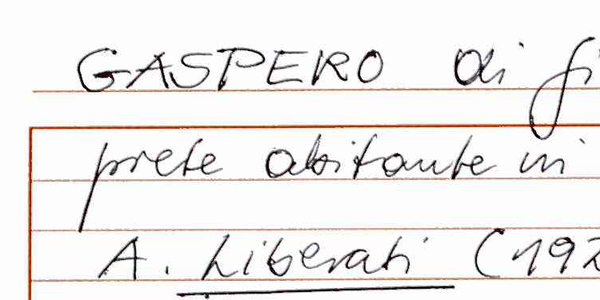 GASPERO di
prete abitante in
A. Liberati (192